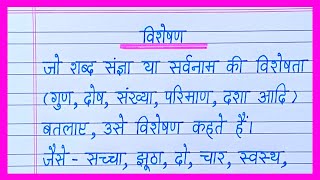 विशेषण
जो शब्द संज्ञा या सर्वनाम की विशेषता
(गुण, दोष, संख्या, परिमाण, दशा आदि)
बतलाए, उसे विशेषण कहते हैं।
जैसे - सच्चा, झूठा, दो, चार, स्वस्थ,